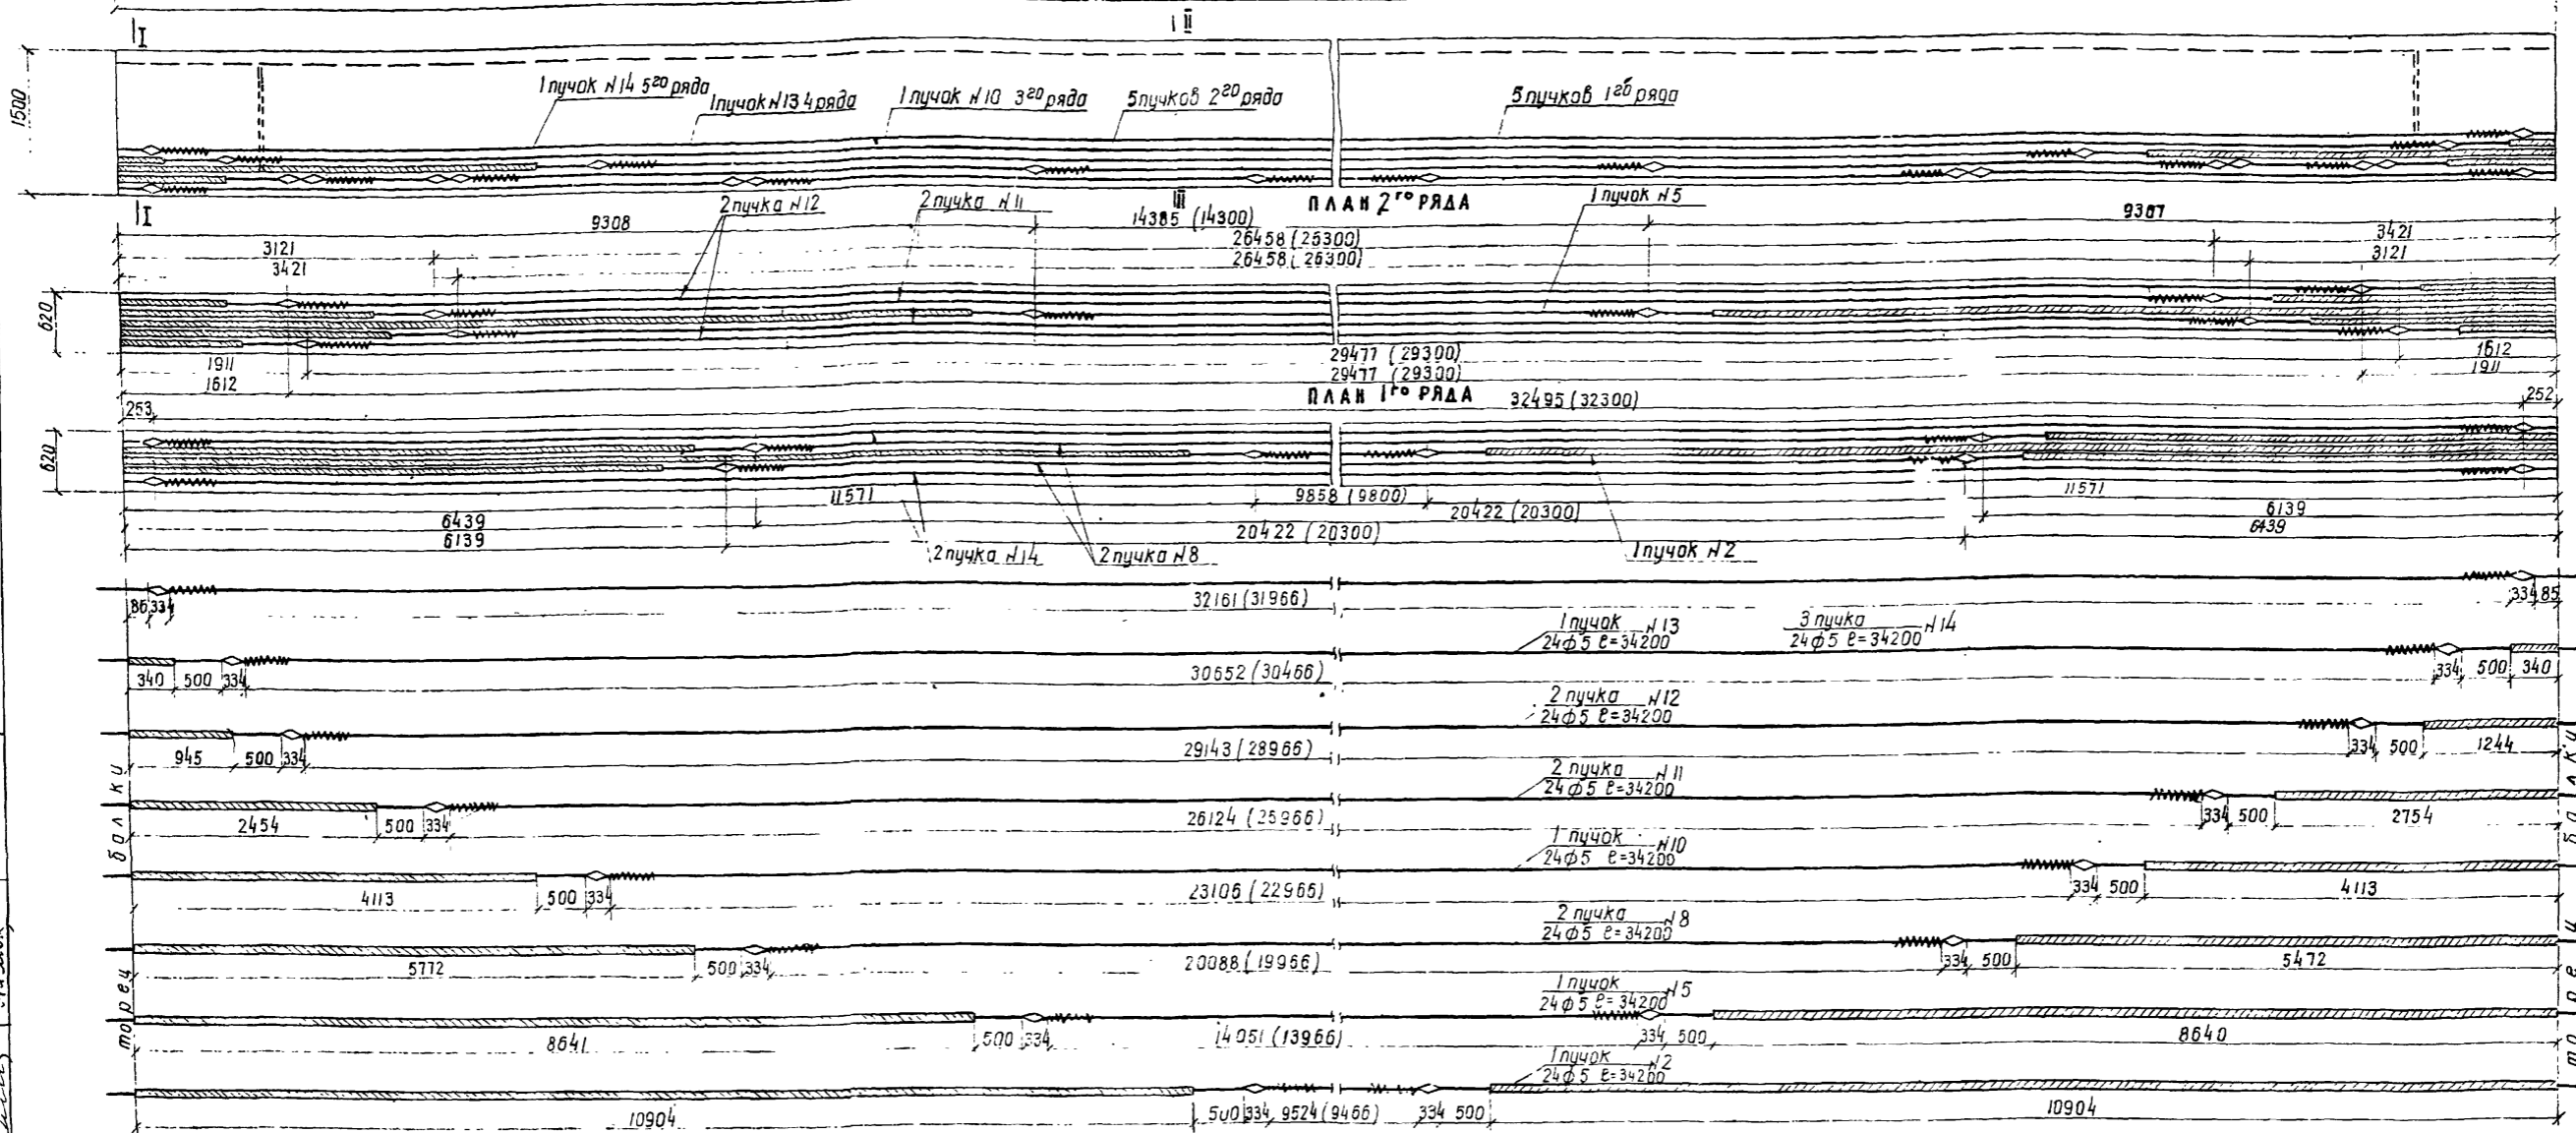 I II
1500
1 пучок N14 5го ряда
1 пучок N13 4 ряда
1 пучок N10 3го ряда
5 пучков 2го ряда
5 пучков 1го ряда
I III
ПЛАН 2го РЯДА
2 пучка N12
2 пучка N11
1 пучок N5
9308 14385 (14300) 9307
3121 26458 (25300) 3421
3421 26458 (26300) 3121
620
29477 (29300)
1911 29477 (29300) 1612
1612 1911
ПЛАН 1го РЯДА
253 32495 (32300) 252
620
11571 9858 (9800) 11571
6439 20422 (20300) 6139
6139 20422 (20300) 6439
2 пучка N14
2 пучка N8
1 пучок N2
86 334 32161 (31966) 334 85
1 пучок N13
24ф5 ℓ=34200
3 пучка N14
24ф5 ℓ=34200
340 500 334 30652 (30466) 334 500 340
2 пучка N12
24ф5 ℓ=34200
945 500 334 29143 (28966) 334 500 1244
2 пучка N11
24ф5 ℓ=34200
2454 500 334 26124 (25966) 334 500 2754
1 пучок N10
24ф5 ℓ=34200
4113 500 334 23106 (22966) 334 500 4113
2 пучка N8
24ф5 ℓ=34200
5772 500 334 20088 (19966) 334 500 5472
1 пучок N5
24ф5 ℓ=34200
8641 500 334 14051 (13966) 334 500 8640
1 пучок N2
24ф5 ℓ=34200
10904 500 334 9524 (9466) 334 500 10904
торец балки
торец балки